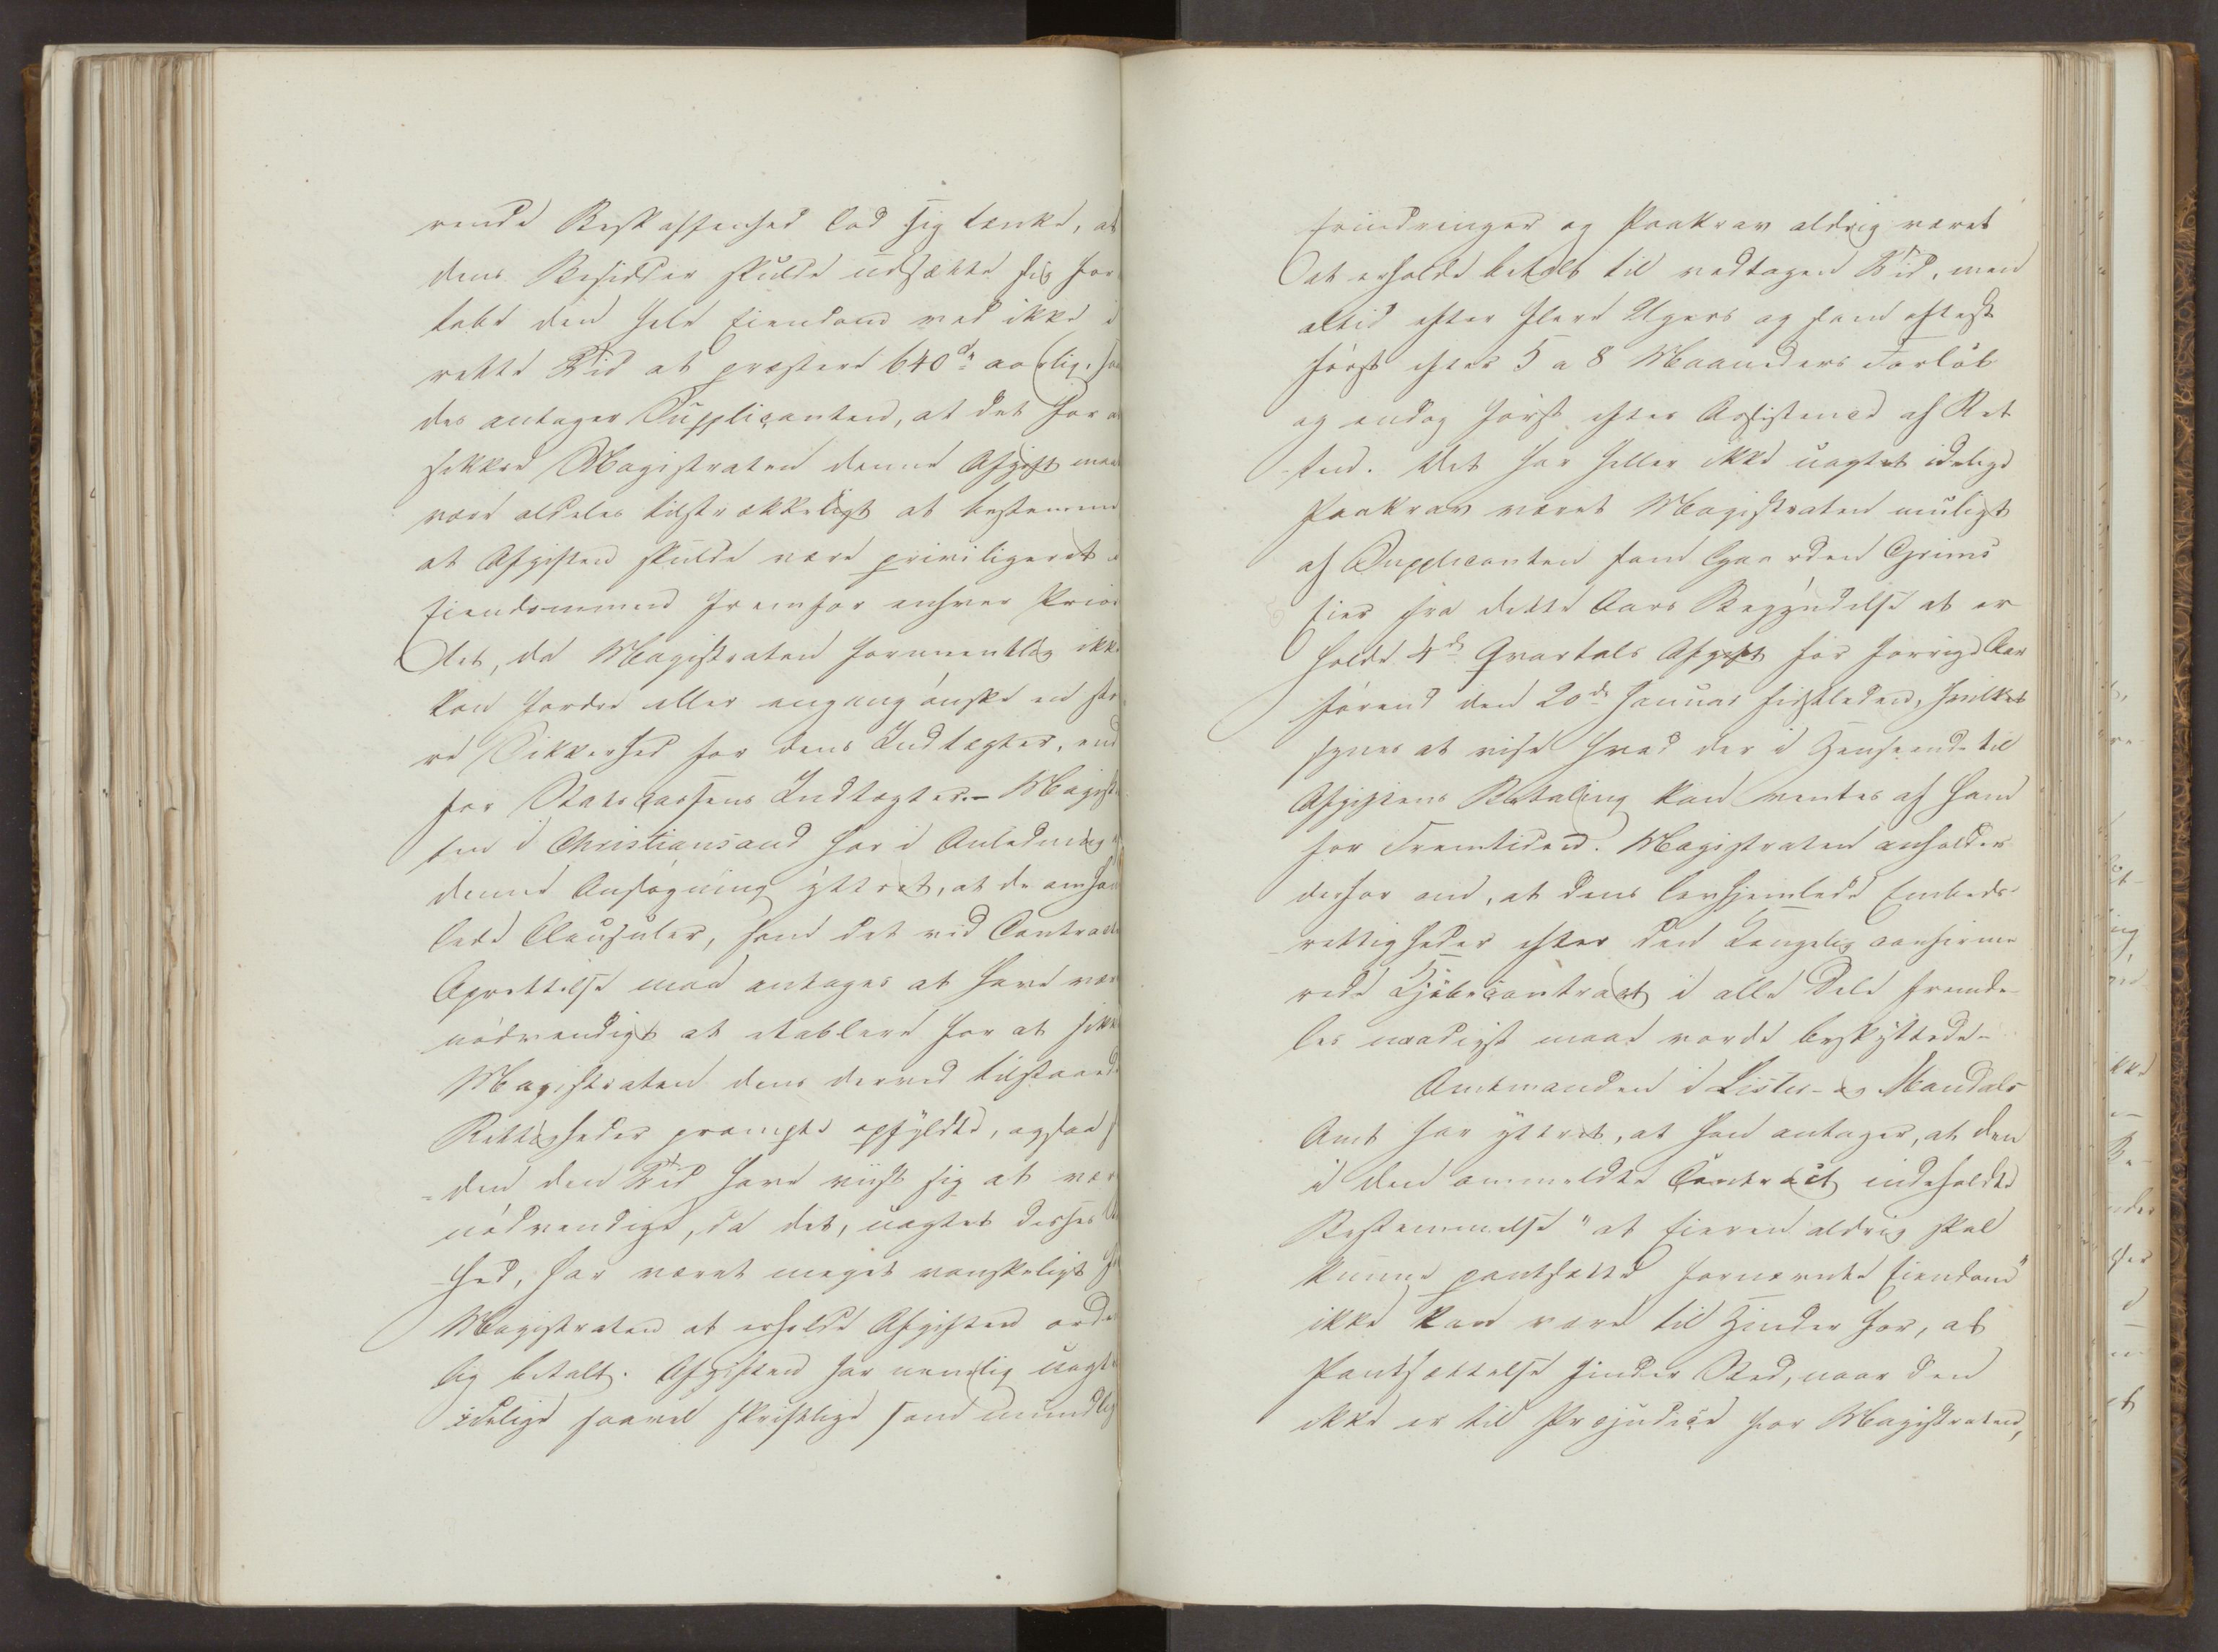 rende Beskaffenhed lod sig tænke, at
dens Besidder skulde udsætte sig for
tabe den hele Eiendom ved ikke i
rette Tid at præstere 640 dr aarlig,
des antager Supplicanten, at det for a
sikkre Magistraten denne Afgift maa
være aldeles tilstrækkeligt at bestemme
at Afgiften skulde være priviligeret i
Eiendommen fremfor enhver Prior
tet, da Magistraten formentlig ikke
kan fordre eller engang ønske en stø
re Sikkerhed for dens Indtægter, end
for Statscassens Indtægter. – Magistra
ten i Christiansand har i Anledning af
denne Ansøgning yttret, at de omhan
lede Clausuler, som det ved Contracte
Oprettelse maa antages at have vær
nødvendigt at etablere for at sikk
Magistraten dens derved tilstaaede
Rettigheder prompte opfyldte, ogsaa s
den den Tid have viist sig at vær
nødvendige, da det, uagtet disses
hed, har været meget vanskeligt f
Magistraten at erholde Afgiften orde
lig betalt. Afgiften har nemlig uagte
idelige saavel skriftlige som mundlig
Erindringer og Paakrav aldrig været
at erholde betalt til vedtagen Tid, men
altid efter flere Ugers og som oftest
først efter 5 a 8 Maaneders Forløb
og endog først efter Assistence af Ret
ten. Det har heller ikke uagtet idelige
Paakrav været Magistraten muligt
af Supplicanten som Gaarden Grims
Eier fra dette Aars Begyndelse at er
holde 4de Qvartals Afgift for forrige Aar
førend den 20de Januar sidstleden, hvilket
synes at vise hvad der i Henseende til
Afgiftens Betaling kan ventes af ham
for Fremtiden. Magistraten anholder
derfor om, at dens lovhjemlede Embeds-
rettigheder efter den Kongelig confirme
rede Kjøbecontract i alle Dele fremde-
les naadigst maae vorde beskyttede.
Amtmanden i Lister- og Mandals
Amt har yttret, at han antager, at den
i den ommeldte Contract indeholdte
Bestemmelse "at Eieren aldrig skal
kunne pantsætte fornævnte Eiendom"
ikke kan være til Hinder for, at
Pantsættelse finder Sted, naar den
ikke er til Præjudice for Magistraten,